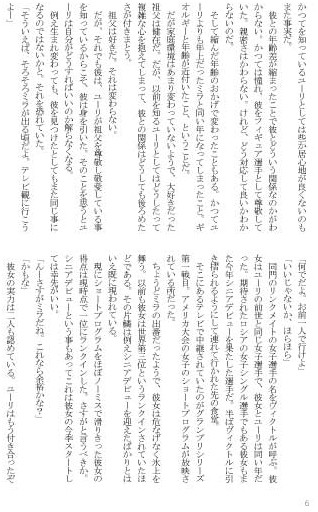 かつてを知っているユーリとしては些か居心地が良くないのも
また事実だ。
彼との年齢差が縮まったことで彼とどういう関係なのかがわ
からない。かつては憧れ、彼をフィギュア選手として尊敬して
いた。親密さはわからない、けれど、どう対応して良いかわか
らないのだ。
そして縮んだ年齢のおかげで変わったこともある。かつてユ
ーリよりも年上だったミラと同い年になってしまったこと、ギ
オルギーと年齢が近付いたこと、ということだ。
だが家庭環境はあまり変わっていないようで、大好きだった
祖父は健在だ。だが、以前を知るユーリとしてはどうしたって
複雑な心を抱えてしまって、彼との関係はどうしても後ろめた
さが付きまとう。
祖父は好きだ。それは変わらない。
だが、それでも彼は、ユーリが祖父を尊敬し敬愛している事
を知っているからこそ、彼は身を引いた。そのことを思うとユ
ーリは自分がどうすればいいのか解らなくなる。
例え生まれ変わっても、彼を見つけたとしてもまた同じ事に
なるのではないかと、それを恐れていた。
「そういえば、そろそろミラが出る頃だよ。テレビ観に行こう
よー」
「何でだよ。お前一人で行けよ」
「いいじゃないか、ほらほら」
同門のリンクメイトの女子選手の名をヴィクトルが呼ぶ。彼
女はユーリの前世と同じ女子選手で、彼女とユーリは同い年だ
った。期待されたロシアの女子シングル選手でもある彼女もま
た今年シニアデビューを果たした選手だ。半ばヴィクトルに引
き摺られるようにして連れて行かれた先の食堂。
そこにあるテレビで中継されていたのがグランプリシリーズ
第一戦目、アメリカ大会の女子のショートプログラムが放映さ
れている所だった。
ちょうどミラの出番だったようで、彼女は危なげなく氷上を
舞う。以前も彼女は世界第三位というランクインされていたほ
どである。その片鱗は例えシニアデビューを迎えたばかりとは
いえ既に現われている。
現にショートプログラムをほぼノーミスで滑りきった彼女の
得点は現時点で一位にランクインした。さすがと言うべきか。
シニアデビューという事もあってこれは彼女の今季スタートし
ては幸先がいい。
「んーさすがミラだね。これなら余裕かな？」
「かもな」
彼女の実力は二人も認めている。ユーリはもう付き合ったぞ、
6